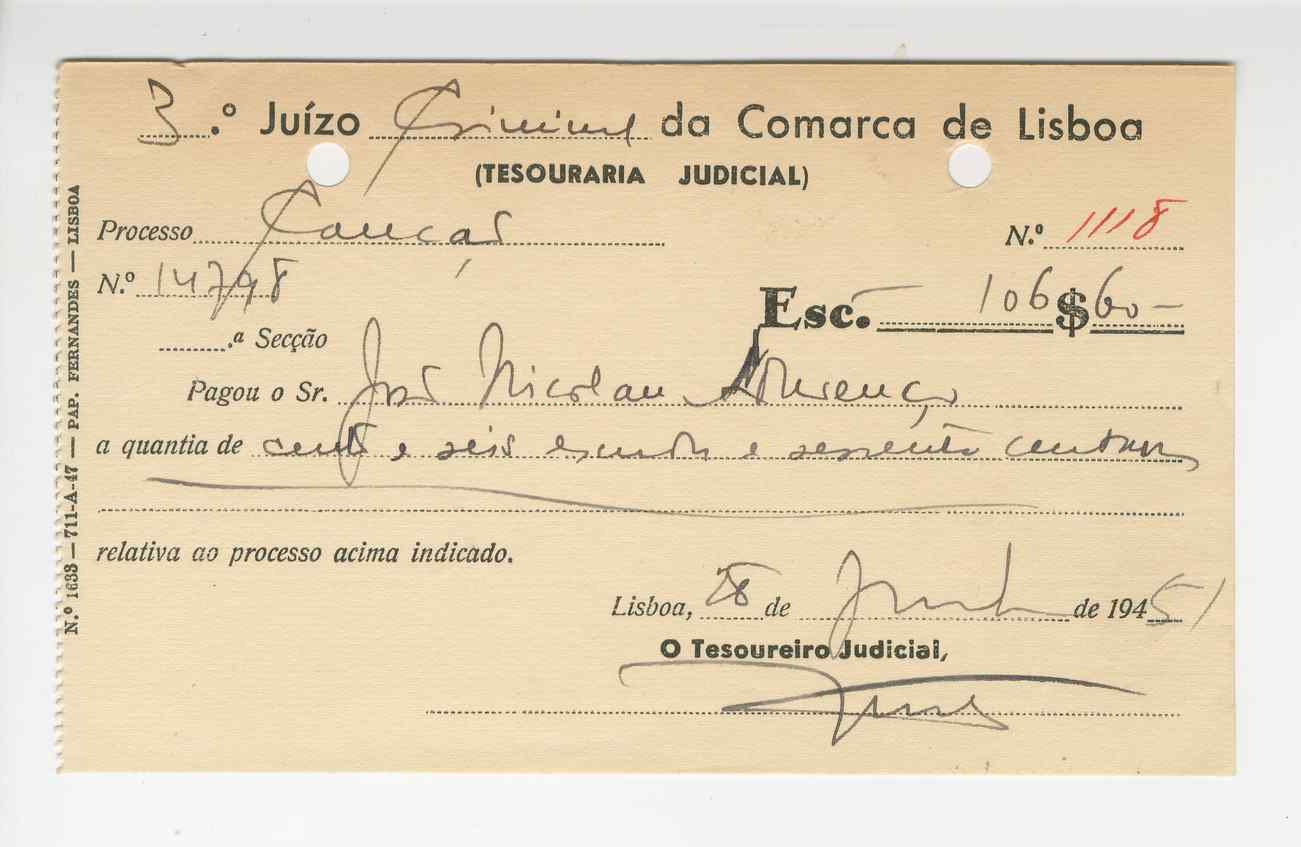 3.º Juízo Criminal da Comarca de Lisboa
(TESOURARIA JUDICIAL)
Processo
N.º 1118
N.º 14798
Esc. 106$60
.ª Secção
Pagou o Sr. José Nicolau Lourenço
a quantia de cento e seis escudos e sessenta centavos
relativa ao processo acima indicado.
Lisboa, 28 de Junho de 194 51
O Tesoureiro Judicial,
N.º 1633 — 711-A-47 — PAP. FERNANDES — LISBOA